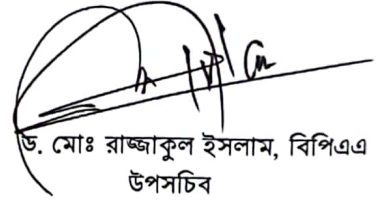 ড. মোঃ রাজ্জাকুল ইসলাম, বিপিএএ
উপসচিব